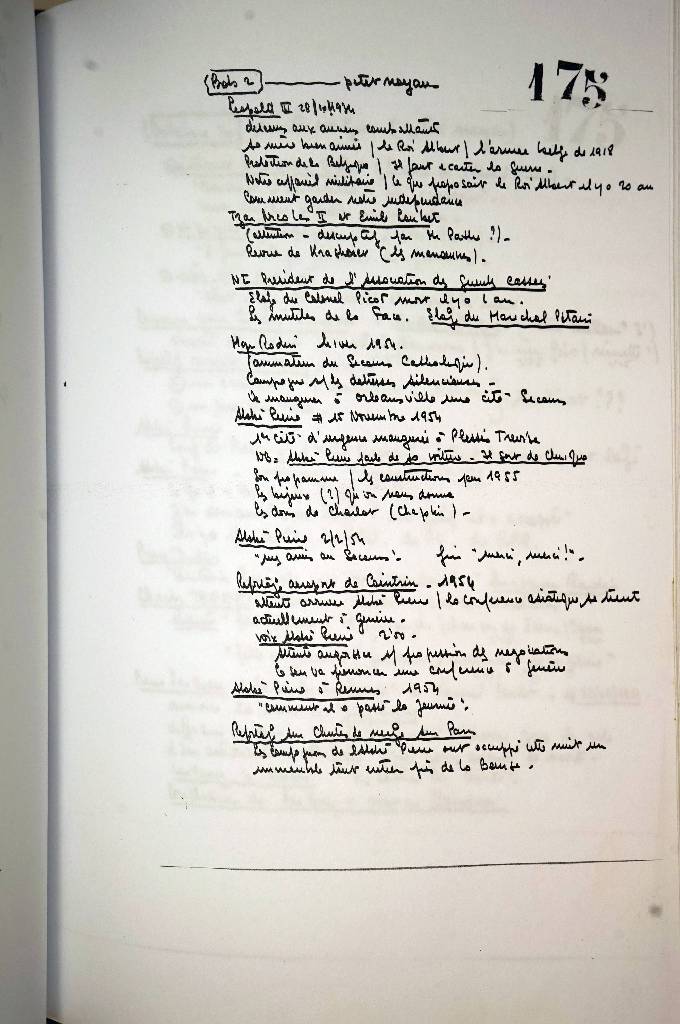 Bob 2 ——— petit noyau
175
Léopold III 28/10/1934
discours aux anciens combattants
sa mère bien aimée / le Roi Albert / l'armée belge de 1918
Protection de la Belgique / Il faut écarter la Guerre -
Notre appareil militaire / ce que proposait le Roi Albert il y a 20 ans
Comment garder notre indépendance
Tzar Nicolas II et Emile Loubet
(attention - descriptif par Mr Pathé ?) -
Revue de (les manœuvres).
Président de l'Association des Gueules cassées
Eloge du Colonel Picot mort il y a 1 an.
Les mutilés de la Face. Eloge du Marechal Pétain
Mgr Rodin hiver 1954.
(animateur du Secours Catholique).
Campagne s/ les détresses silencieuses -
Va inaugurer à Orleansville une cité Secours
Abbé Pierre # 15 Novembre 1954
1re cité d'urgence inaugurée à Plessis Trevise
NB. Abbé Pierre parle de sa voiture - Il sort de Clinique
Son programme / les constructions pour 1955
Les bijoux (?) qu'on nous donne
Les dons de Charlot (Chaplin) -
Abbé Pierre 2/2/54
"mes amis au Secours". fin "merci, merci!" -
Reportage aeroport de Cointrin - 1954
attente arrivée Abbé Pierre / la conference asiatique se tient
actuellement à Genève -
voix Abbé Pierre 2'00 -
Attente angoisse s/ progression des negociations
Ce soir va prononcer une conférence à Genève
Abbé Pierre à Rennes 1954
"comment il a passé la journée".
Reportage sur Chutes de neige sur Paris
Les Compagnons de l'Abbé Pierre ont occuppé cette nuit un
immeuble tout entier près de la Bourse.